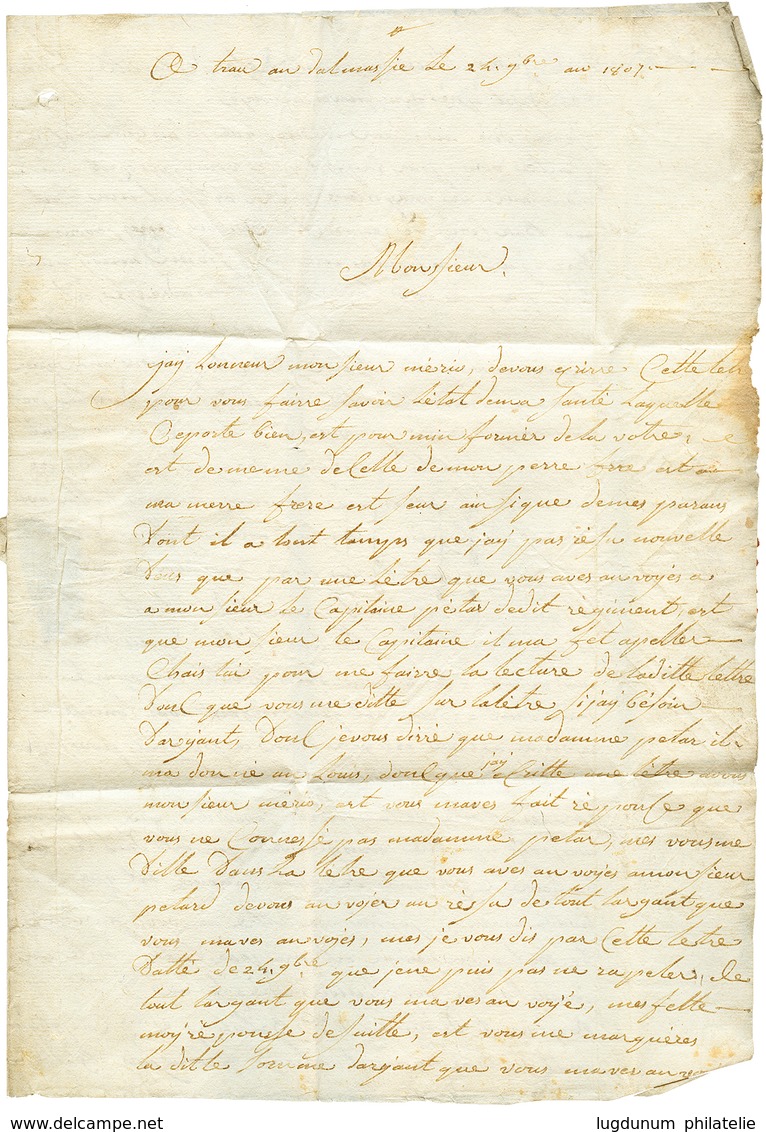 A trau an dalmassie Le 24. 9bre an 1807.
Monsieur.
jay Lonneur monsieur mério, devous ecrirre Cette letr
pour vous fairre savoir Létat dema santé Laquelle
Ceporte bien, est pour min former dela votre,
est de meme de Celle de mon perre frre est
ma merre frere est seur ainsique demes parans
Dont il a tout tamps que jay pas résu nouvelle
Deus que par une Létre que vous aves anvoyés a
a monsieur Le Capitaine pétar dedit régiment, est
que monsieur le Capitaine il ma fet apeller
Chais lui pour me fairre la lecture de laditte lettre
Donc que vous me ditte sur Latétre sijay bésoin
Dargant, Donc jevous dirré que madamme petar il
ma donné un Louis, donc que jay Critte une létre avous
monsieur mério, est vous maves fait réponce que
vous ne Connessé pas madamme petar, mes vousme
Ditte Dans La létre que vous aves anvoyés amonsieur
petard devous anvojer un résu de tout largant que
vous maves anvojés, mes je vous dis par Cette letre
Datté de 24. 9bre que jene puis pas me rapeler, de
tout largant que vous maves anvoyé, mes fette
moy réponsse desuitte, est vous me marquéres
la ditte somme dargant que vous maves anvo
lugdunum philatelie